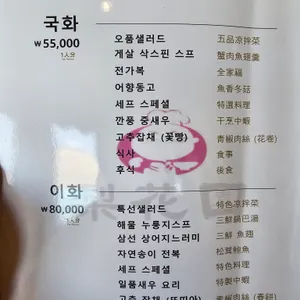 국화
₩55,000
1人分
오품샐러드 五品凉拌菜
게살 삭스핀 스프 蟹肉魚翅羹
전가복 全家福
어향동고 魚香冬菇
세프 스페셜 特選料理
깐풍 중새우 干烹中蝦
고추잡채 (꽃빵) 青椒肉絲 (花卷)
식사 食事
후식 後食
이화
₩80,000
1人分
특선샐러드 特色凉拌菜
해물 누룽지스프 三鮮鍋巴湯
삼선 상어지느러미 三鮮 魚翅
자연송이 전복 松茸鮑魚
세프 스페셜 特色料理
일품새우 요리 特製中蝦
고추 잡채